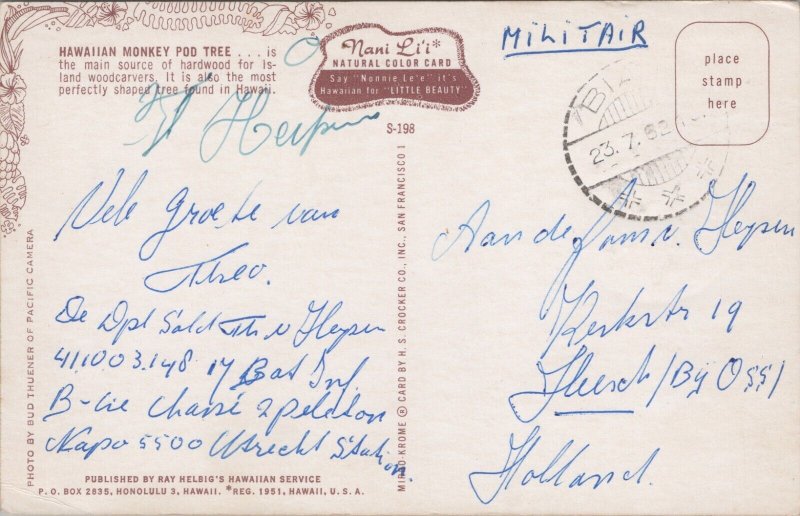 HAWAIIAN MONKEY POD TREE . . . is
the main source of hardwood for Is-
land woodcarvers. It is also the most
perfectly shaped tree found in Hawaii.
Nani Li'i*
NATURAL COLOR CARD
Say "Nonnie Le'e" it's
Hawaiian for "LITTLE BEAUTY"
S-198
MiLiTAIR
place
stamp
here
23.7.62
Vele Groete van
Theo.
De Dpl Sold Th v Heypen
411003.148 17 Bat Inf
B-Cie 2 peleton
Napo 5500 Utrecht Station.
Aan de Fam v. Heypen
Kerkstr 19
Heesch (Bij Oss)
Holland.
PHOTO BY BUD THUENER OF PACIFIC CAMERA
MIRRO-KROME ® CARD BY H. S. CROCKER CO., INC., SAN FRANCISCO 1
PUBLISHED BY RAY HELBIG'S HAWAIIAN SERVICE
P. O. BOX 2835, HONOLULU 3, HAWAII. *REG. 1951, HAWAII, U. S. A.